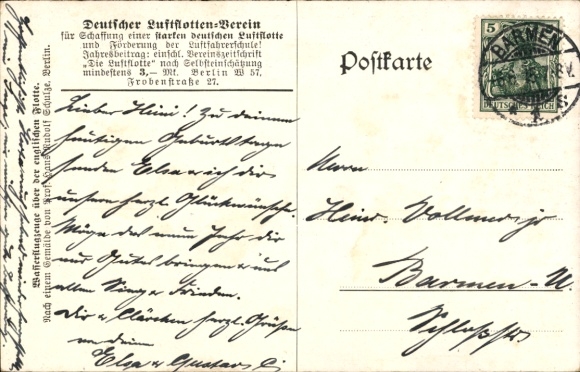 Deutscher Luftflotten-Verein
für Schaffung einer starken deutschen Luftflotte
und Förderung der Luftfahrerschule!
Jahresbeitrag: einschl. Vereinszeitschrift
„Die Luftflotte“ nach Selbsteinschätzung
mindestens 3,— Mk. Berlin W 57,
Frobenstraße 27.
Wasserflugzeuge über der englischen Flotte.
Nach einem Gemälde von Prof. Hans Rudolf Schulze, Berlin.
Lieber Heini! Zu deinem
heutigen Geburtstage
senden Elsa & ich dir
unsere herzl. Glückwünsche.
Möge das neue Jahr dir
nur Gutes bringen & uns
allen Sieg & Frieden.
Dir & Clärchen herzl. Grüße
von deinen
Elsa & Gustav
Postkarte
5
BARMEN
DEUTSCHES REICH
Herrn
Heinr. Vollmer jr
Barmen-U.
Schloßstr.